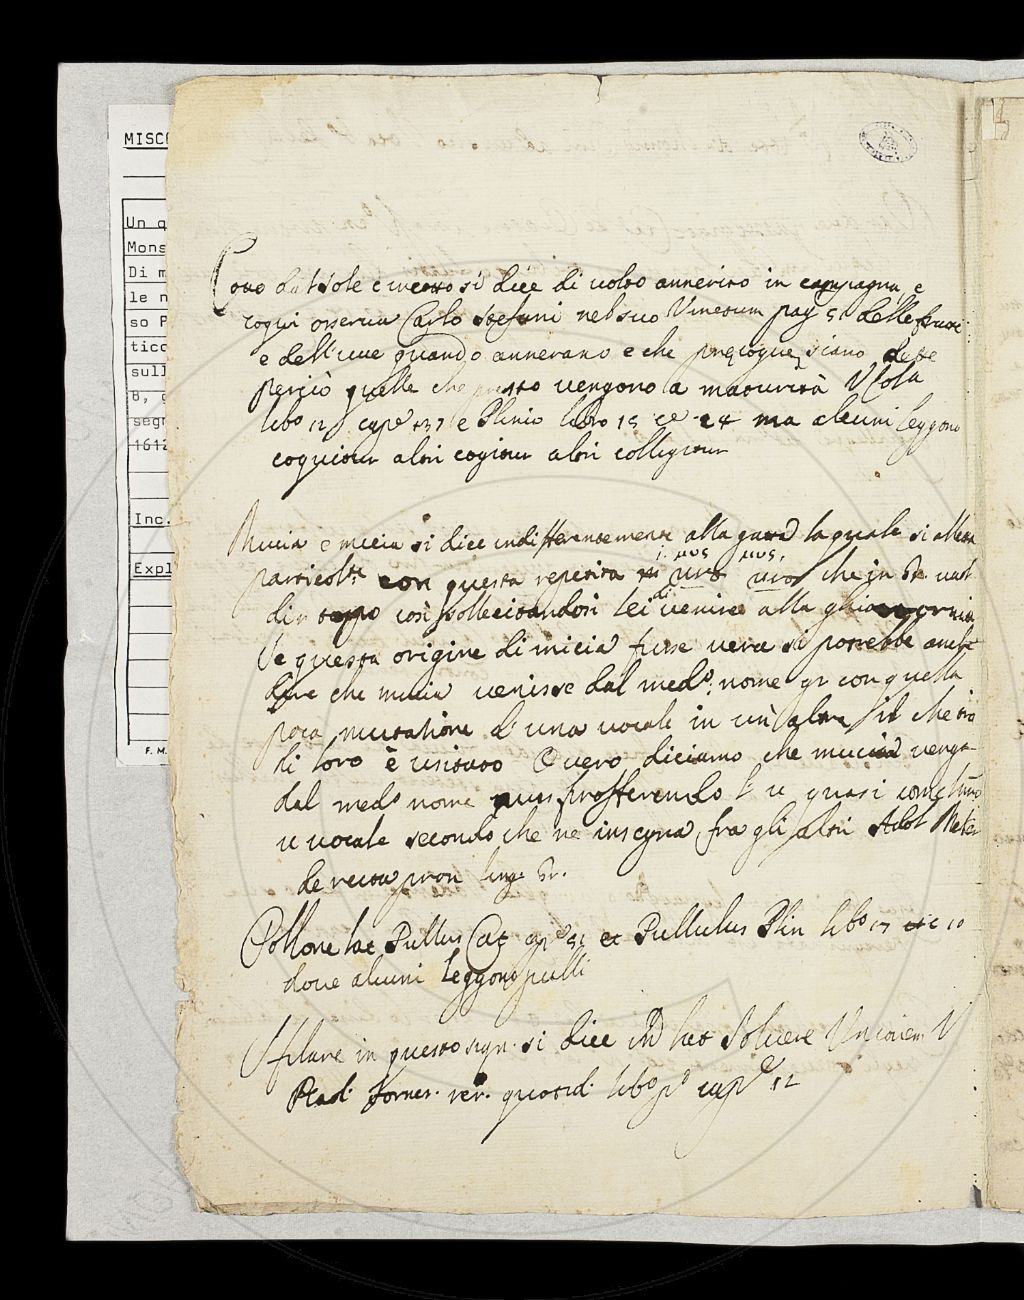 MISC
Un q
Mons
Di m
le n
so P
tico
sull
8,
segn
1612
Inc.
Expl
F. M.
Cotto dal Sole e incotto si dice di volto annerito in campagna e
coqui osserva Carlo Stefani nel suo Vinetum pag 51 delle frutte
e dell'uve quando annerano e che precoque siano dette
perciò quelle che presto vengono a maturità V Cola
libo 12 cape 37 e Plinio libro 15 ce 24 ma alcuni leggono
coquitur altri cogitur altri colligitur
Mucia e micia si dice indifferentemente alla gatta la quale si alletta
particolte con questa repetita μυς μυς, che in Gr. vuol
dir toppo così sollecitandosi lei di venire alla
Se questa origine di micia fusse vera si potrebbe anche
dire che mucia venisse dal medo nome gr con quella
poca mutatione d'una vocale in un' altra il che tra
di loro è usitato Overo diciamo che mucia venga
dal medo nome mus profferendo l' u quasi come
u vocale secondo che ne insegna fra gli altri Adol Meker
de recta pron ling. Gr.
Pollone lat Pullus Cat cape 51 et Pullulus Plin libo 17 c 10
dove alcuni leggono pulli
Sfilare in questo sign. si dice in lat Solvere V
Plaut. ver. quotid. libo po cape 12